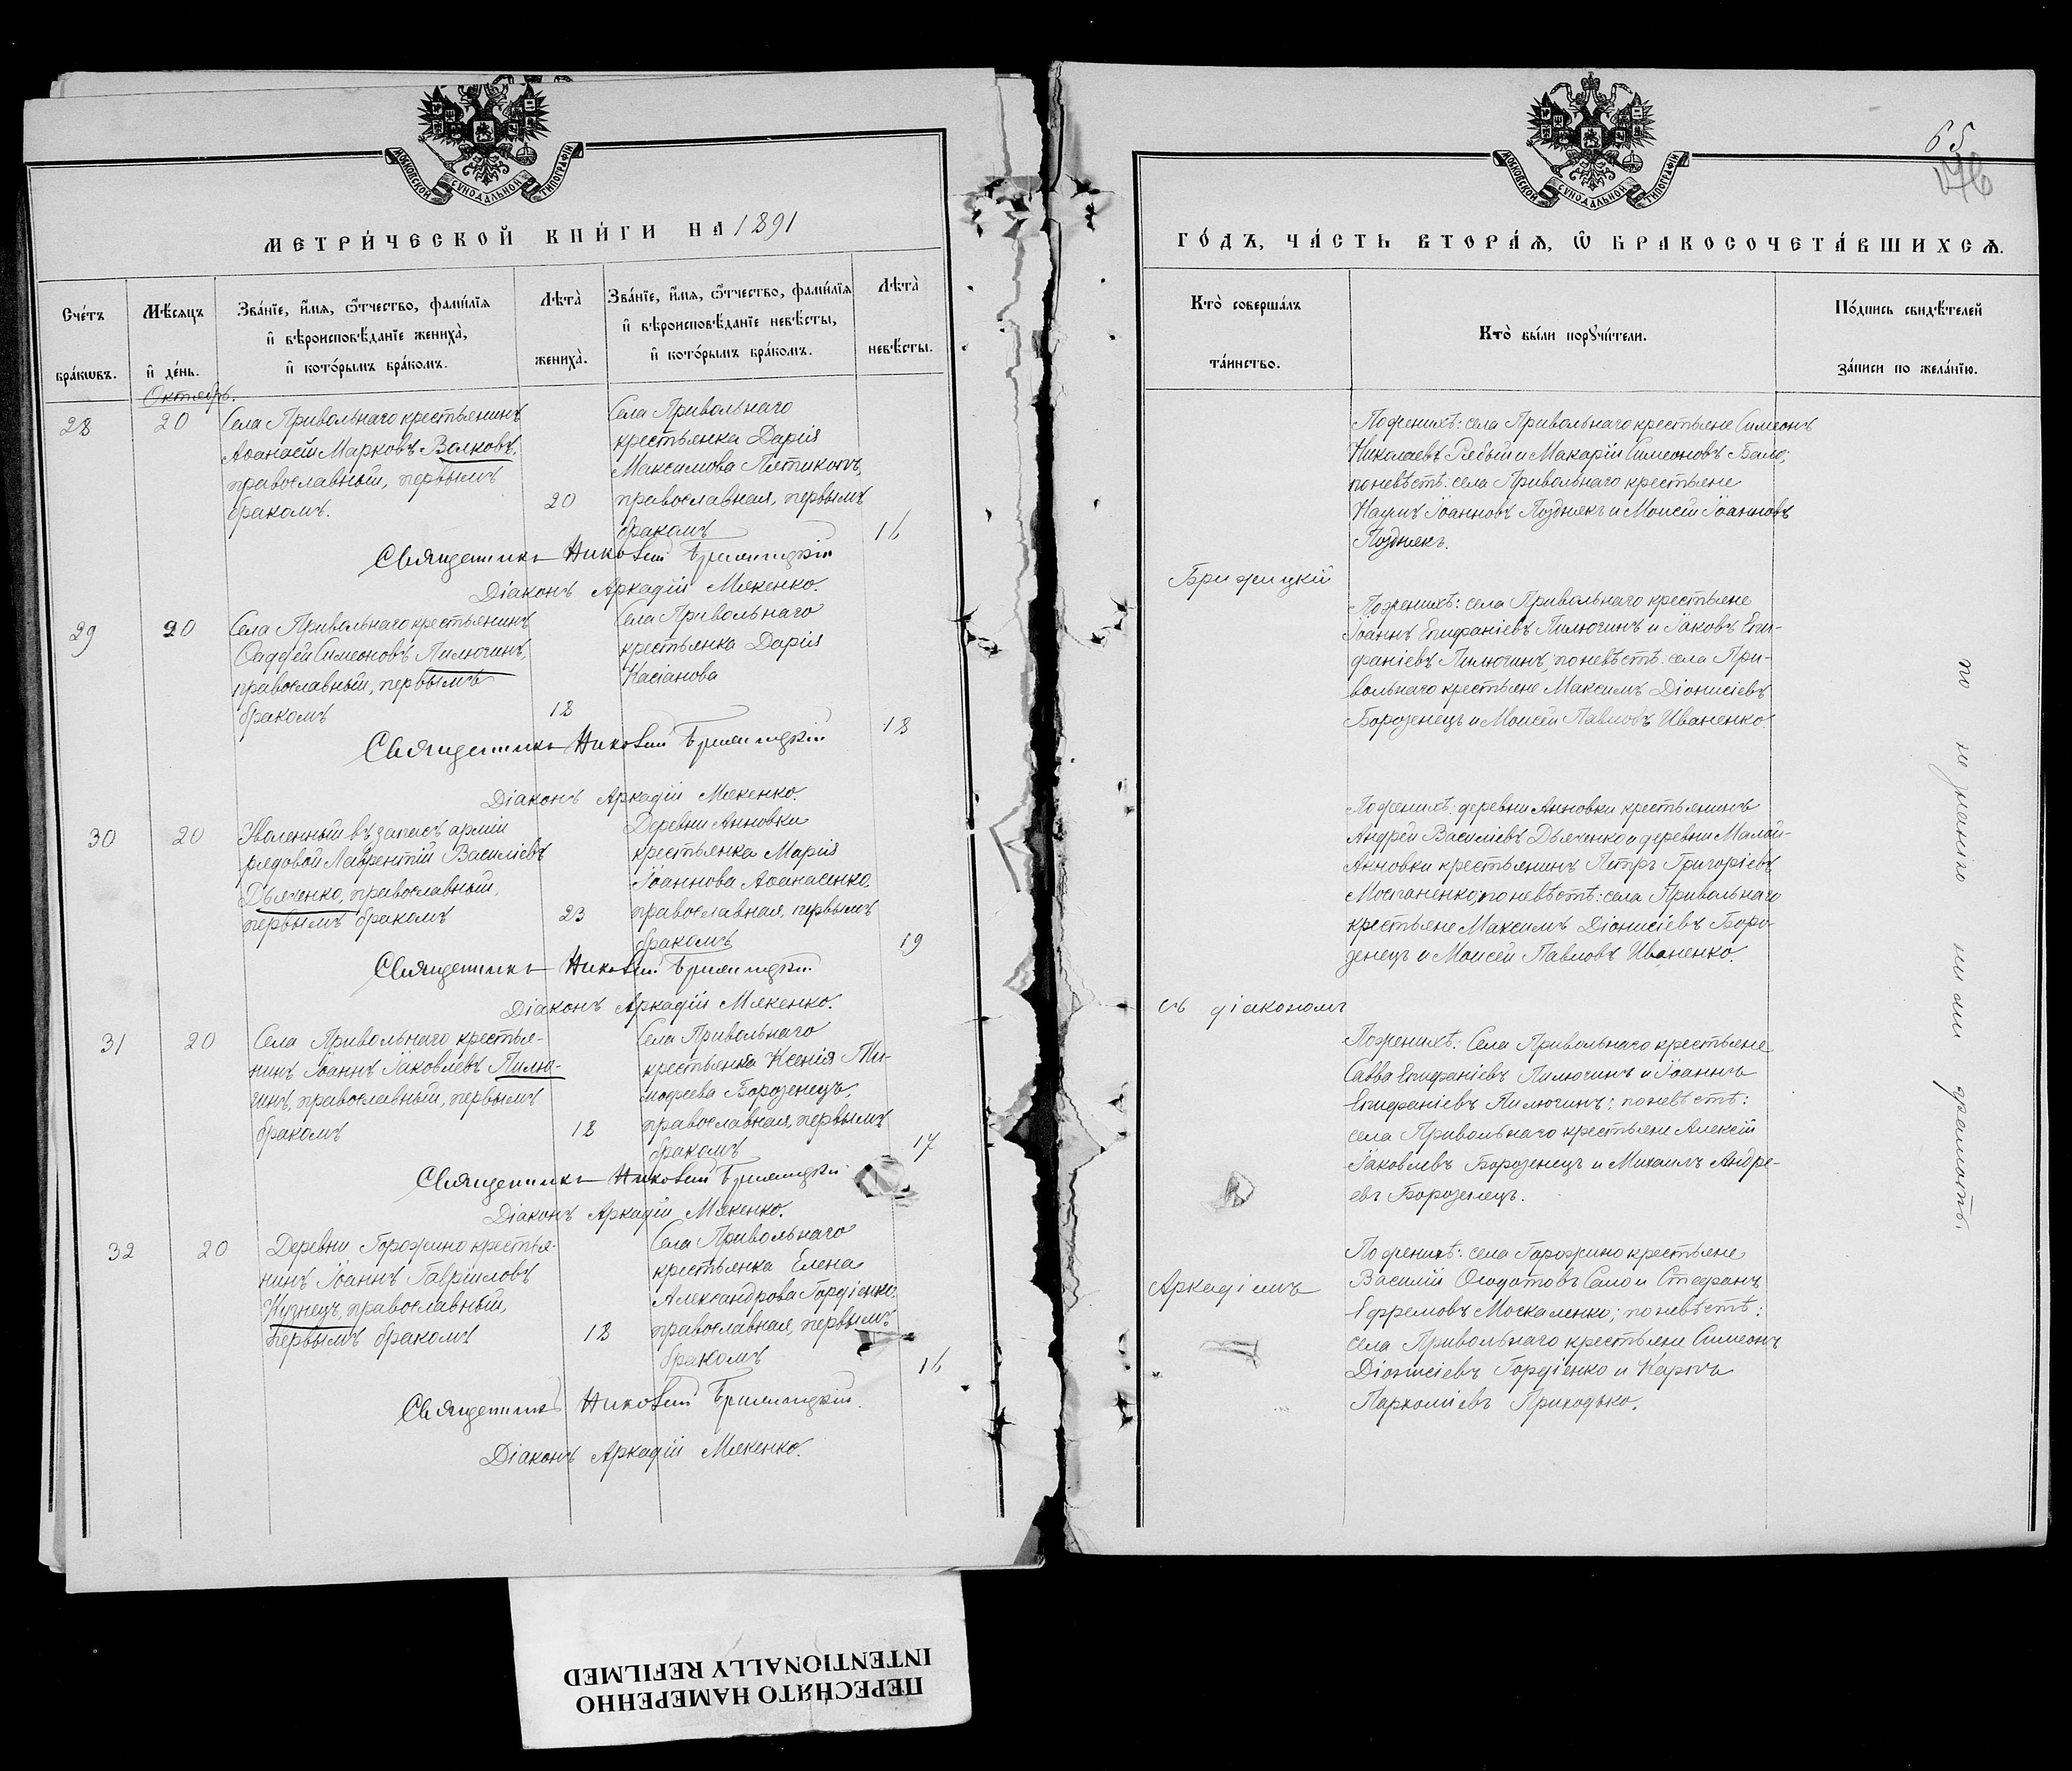 МОСКОВСКОЙ СУНОДАЛЬНОЙ ТИПОГРАФІИ
МЕТРИ́ЧЕСКОЙ КНИ́ГИ НА 1891
Сче́тъ бра́кѡвъ.
Мѣ́сяцъ и҆ де́нь.
Зва́нїе, и҆́мѧ, ѻ҆́тчество, фами́лїѧ
и҆ вѣроисповѣ́данїе жениха̀,
и҆ кото́рымъ бра́комъ.
Лѣта̀ жениха̀.
Зва́нїе, и҆́мѧ, ѻ҆́тчество, фами́лїѧ
и҆ вѣроисповѣ́данїе невѣ́сты,
и҆ кото́рымъ бра́комъ.
Лѣта̀ невѣ́сты.
Октябрь.
28
20
Села Привольнаго крестьянинъ
Аѳанасій Марковъ Волковъ,
православный, первымъ
бракомъ.
20
Села Привольнаго
крестьянка Дарія
Максимова Пятикопъ,
православная, первымъ
бракомъ
16
Священникъ
Діаконъ Аркадій Мякенко.
29
20
Села Привольнаго крестьянинъ
Ѳаддей Симеоновъ Пилюгинъ,
православный, первымъ
бракомъ
18
Села Привольнаго
крестьянка Дарія
Касіанова
18
Священникъ
Діаконъ Аркадій Мякенко.
30
20
Уволенный въ запасъ арміи
рядовой Лаврентій Василіевъ
Дьяченко, православный,
первымъ бракомъ
23
Деревни Анновки
крестьянка Марія
Іоаннова Аѳанасенко,
православная, первымъ
бракомъ
19
Священникъ
Діаконъ Аркадій Мякенко.
31
20
Села Привольнаго крестья-
нинъ Іоаннъ Іаковлевъ Пилю-
гинъ, православный, первымъ
бракомъ
18
Села Привольнаго
крестьянка Ксенія Ти-
моѳеева Борозенецъ,
православная, первымъ
бракомъ
17
Священникъ
Діаконъ Аркадій Мякенко.
32
20
Деревни Горожино крестья-
нинъ Іоаннъ Гавріиловъ
Кузнецъ, православный,
первымъ бракомъ
18
Села Привольнаго
крестьянка Елена
Александрова Гордіенко,
православная, первымъ
бракомъ
16
Священникъ
Діаконъ Аркадій Мякенко.
МОСКОВСКОЙ СУНОДАЛЬНОЙ ТИПОГРАФІИ
65
ГО́ДЪ, ЧА́СТЬ ВТОРА́Ѧ, Ѡ҆ БРАКОСОЧЕТА́ВШИХСѦ.
Кто̀ соверша́лъ та́инство.
Кто̀ бы́ли порꙋчи́тели.
По́дпись свидѣ́телей
за́писи по жела́нїю.
По женихѣ: села Привольнаго крестьяне Симеонъ
Николаевъ Рябый и Макарій Симеоновъ Бало;
по невѣстѣ: села Привольнаго крестьяне
Наумъ Іоанновъ Позднякъ и Моисей Іоанновъ
Позднякъ.
По женихѣ: села Привольнаго крестьяне
Іоаннъ Епифаніевъ Пилюгинъ и Іаковъ Епи-
фаніевъ Пилюгинъ; по невѣстѣ: села При-
вольнаго крестьяне Максимъ Діонисіевъ
Борозенецъ и Моисей Павловъ Иваненко.
По женихѣ: деревни Анновки крестьянинъ
Андрей Василіевъ Дьяченко и деревни Малой-
Анновки крестьянинъ Петръ Григоріевъ
Моспаненко; по невѣстѣ: села Привольнаго
крестьяне Максимъ Діонисіевъ Боро-
зенецъ и Моисей Павловъ Иваненко.
съ діакономъ
По женихѣ: Села Привольнаго крестьяне
Савва Епифаніевъ Пилюгинъ и Іоаннъ
Епифаніевъ Пилюгинъ; по невѣстѣ:
села Привольнаго крестьяне Алексій
Іаковлевъ Борозенецъ и Михаилъ Андре-
евъ Борозенецъ.
По женихѣ: села Горожино крестьяне
Василій Ѳеодотовъ Сало и Стефанъ
Ефремовъ Москаленко; по невѣстѣ:
села Привольнаго крестьяне Симеонъ
Діонисіевъ Гордіенко и Карпъ
Пархоміевъ Приходько.
Аркадіемъ
по не знанію ими грамотѣ.
ПЕРЕСНЯТО НАМЕРЕННО
INTENTIONALLY REFILMED